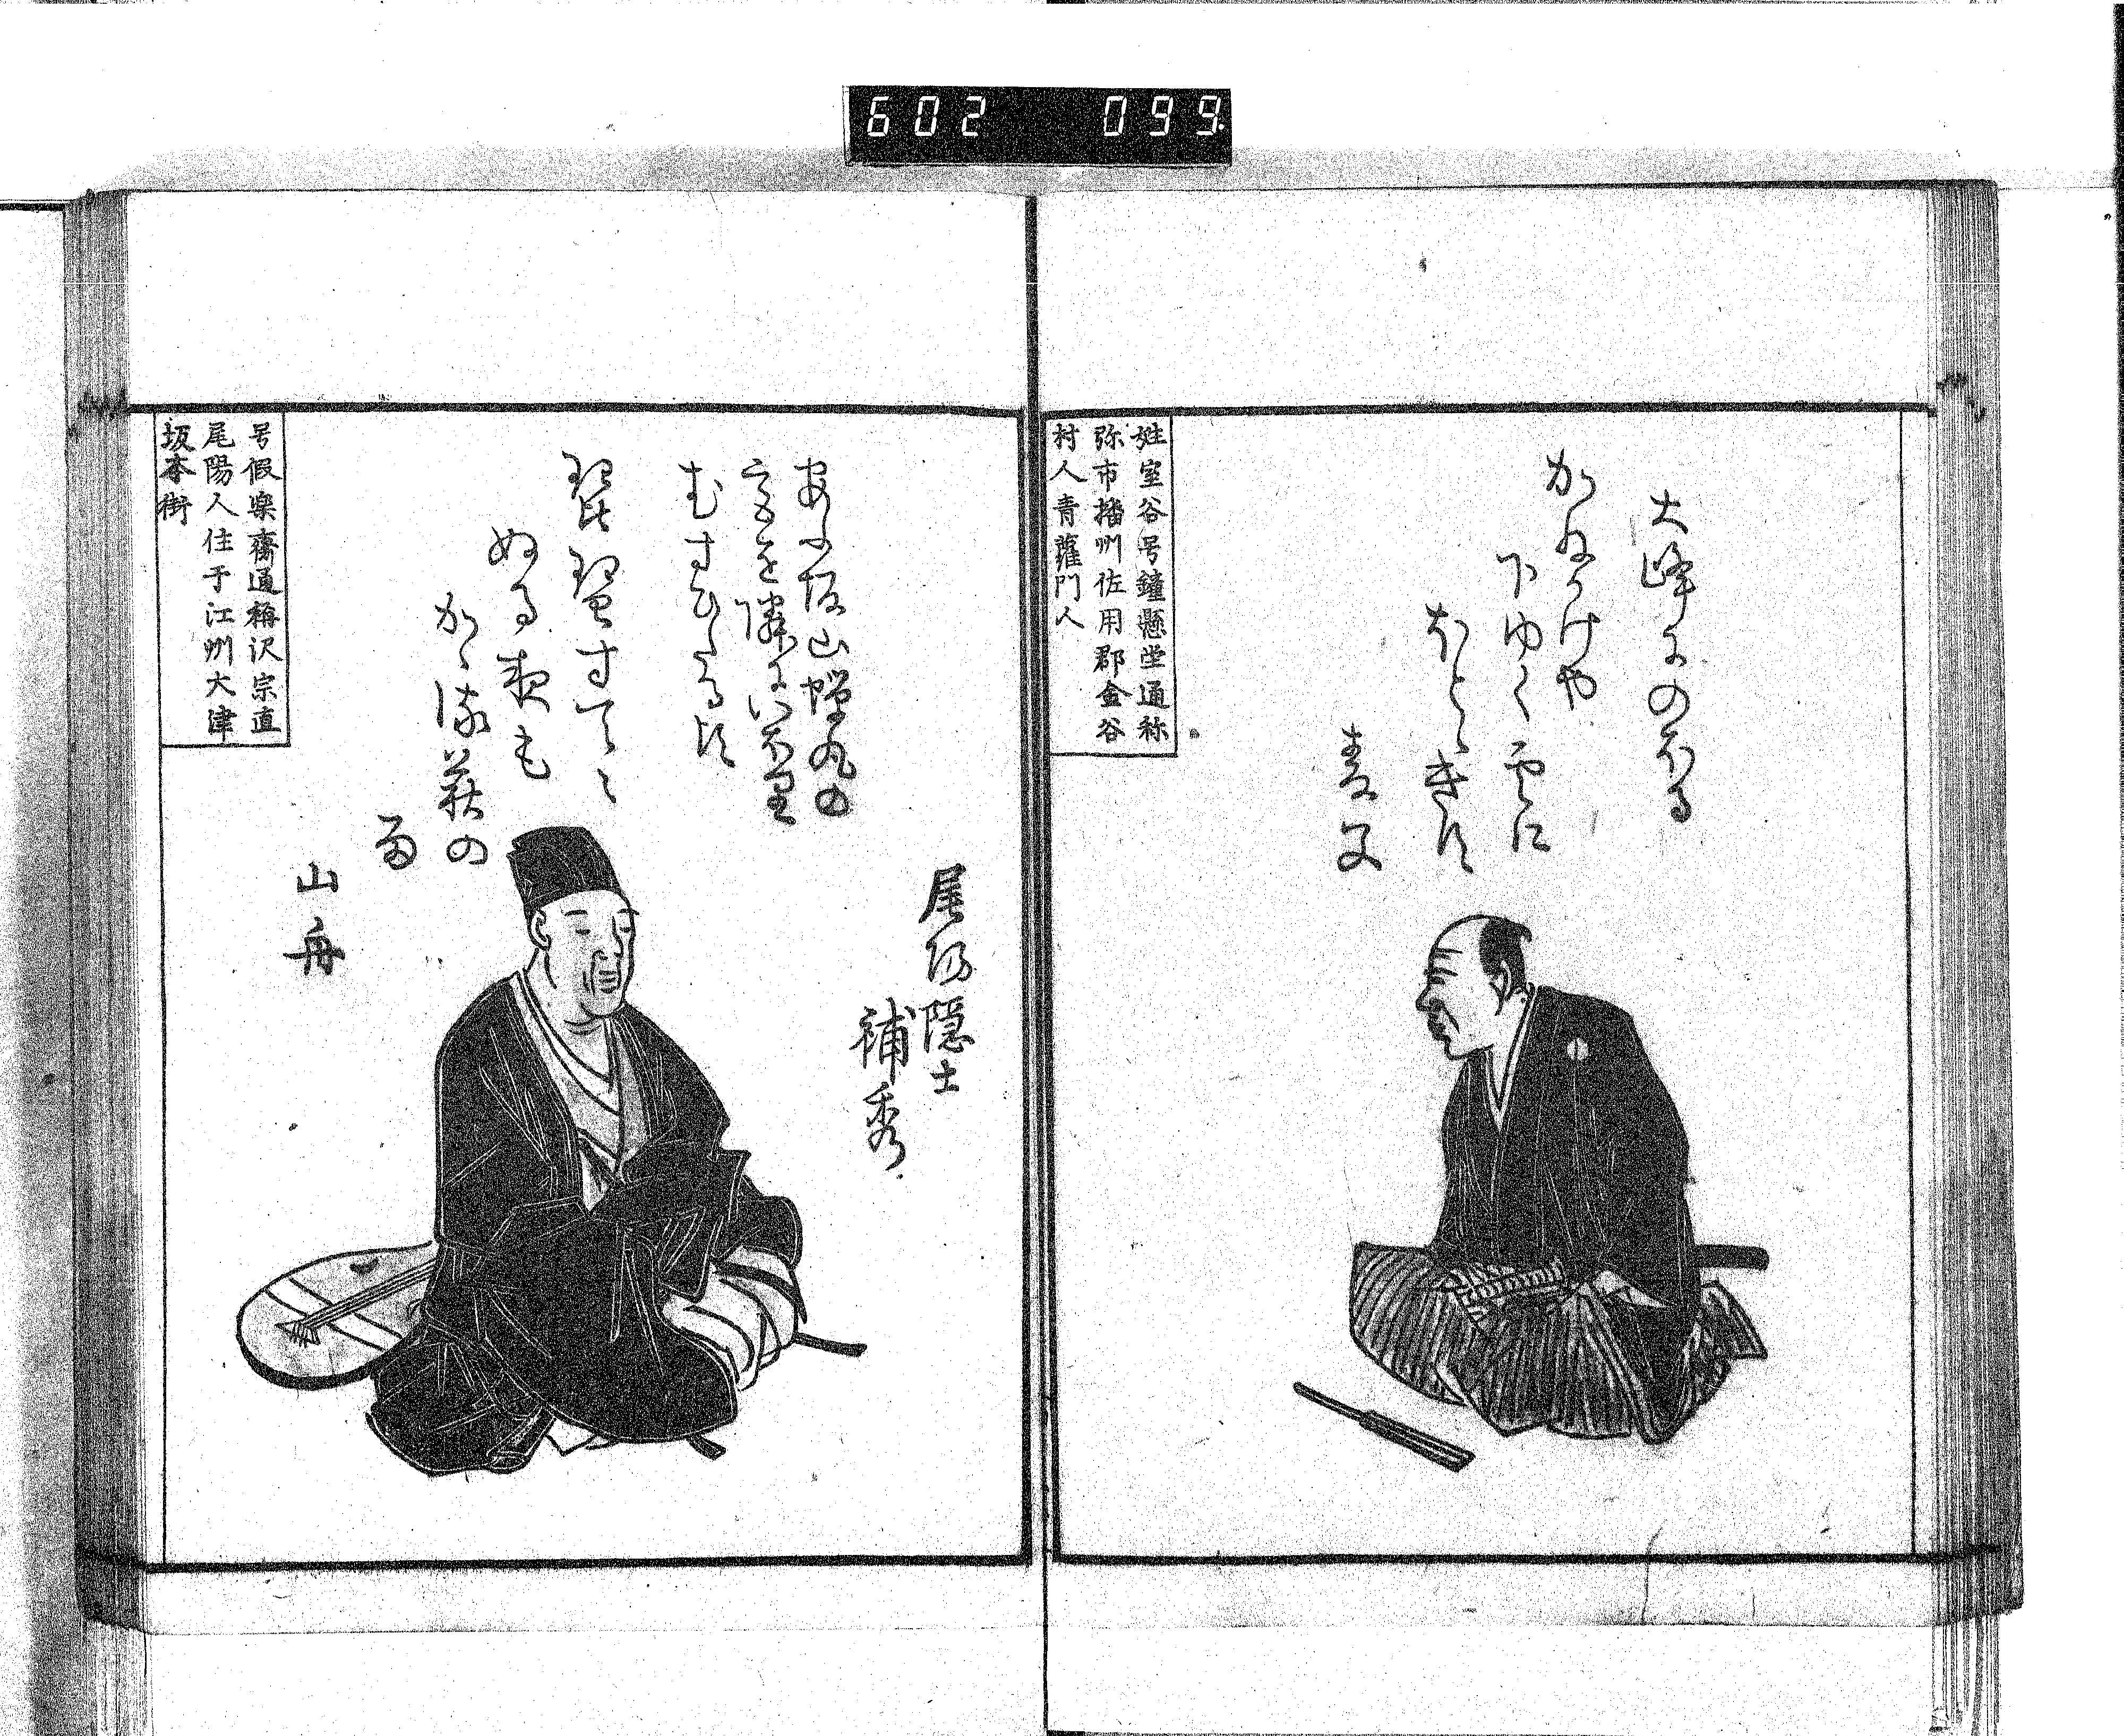 602 099
大峰にのほる
かねかけや
下ゆく雲に
ほとゝきす
青父
姓室谷号鐘懸堂通称
弥市播州佐用郡金谷
村人青蘿門人
尾陽隠士
補秀
あふ坂山蝉丸の
宮を隣に
むすひたる頃
琵琶すてゝ
ぬる夜も
かゝれ萩の
山舟
号假楽齋通稱沢宗直
尾陽人住于江州大津
坂本街